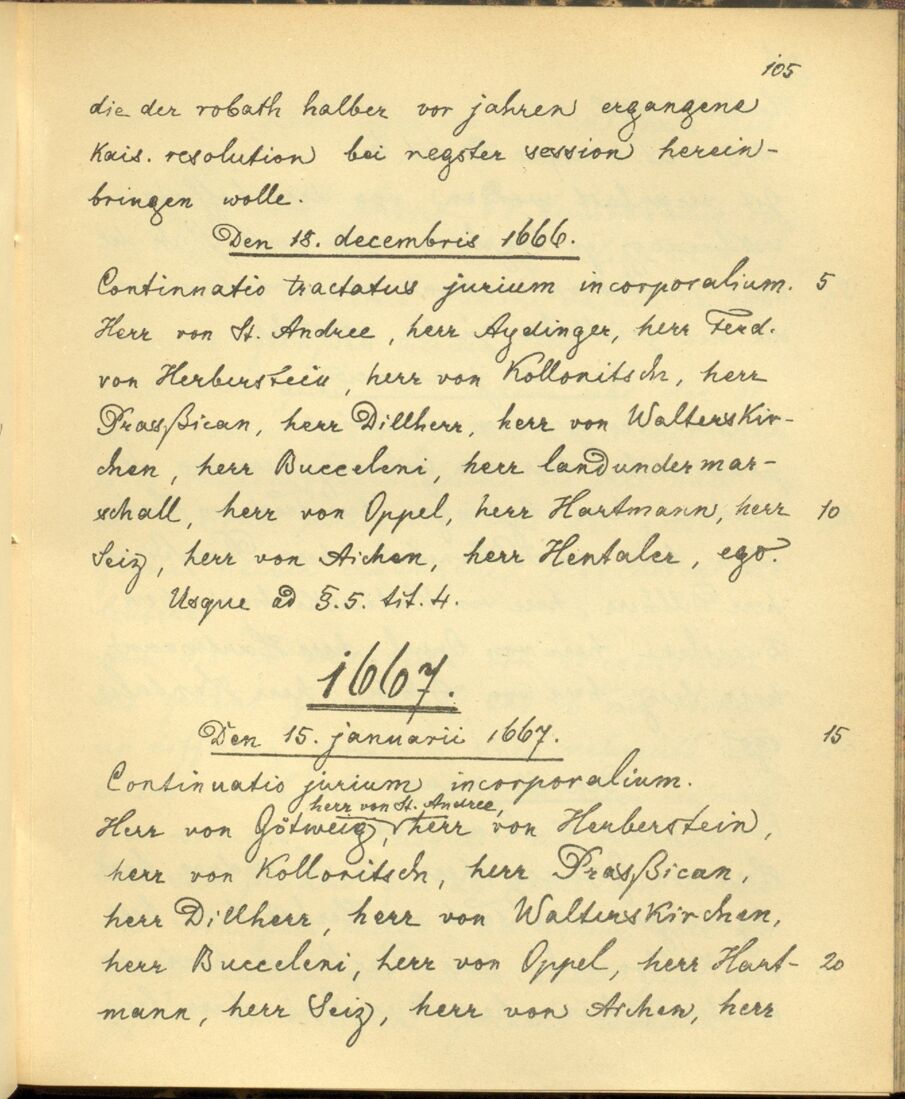 105
die der robath halber vor jahren ergangene
kais. resolution bei negster session herein-
bringen wolle.
Den 18. decembris 1666.
Continuatio tractatus jurium incorporalium. 5
Herr von St. Andree, herr Aydinger, herr Ferd.
von Herberstein, herr von Kollonitsch, herr
Prasßican, herr Dillherr, herr von Walterskir-
chen, herr Bucceleni, herr landundermar-
schall, herr von Oppel, herr Hartmann, herr 10
Seiz, herr von Aichen, herr Hentaler, ego.
Usque ad §. 5. tit. 4.
1667.
Den 15. januarii 1667. 15
Continuatio jurium incorporalium.
herr von St. Andree,
Herr von Götweig, herr von Herberstein,
herr von Kollonitsch, herr Prasßican,
herr Dillherr, herr von Walterskirchen,
herr Bucceleni, herr von Oppel, herr Hart- 20
mann, herr Seiz, herr von Aichen, herr